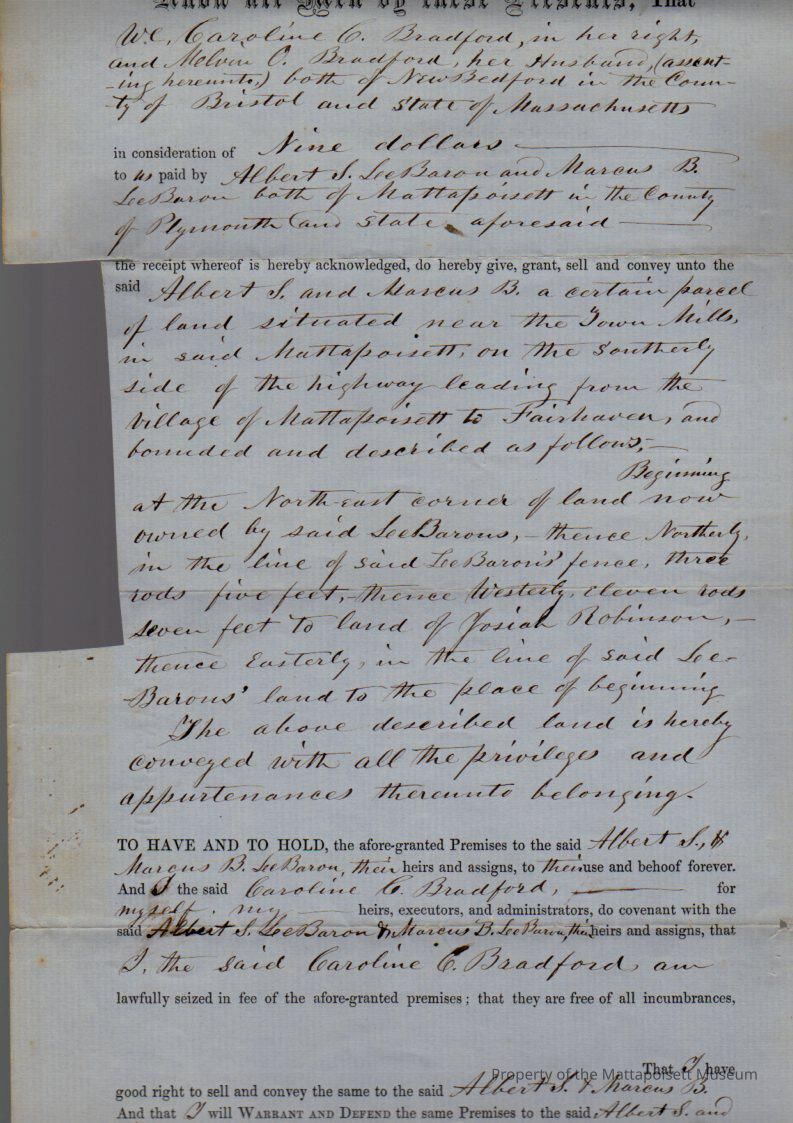 Know all Men by these Presents, That
We, Caroline C. Bradford, in her right,
and Melvin O. Bradford, her Husband, (assent-
-ing hereunto,) both of New Bedford in the Coun-
ty of Bristol and State of Massachusetts
in consideration of Nine dollars
to us paid by Albert S. LeeBaron and Marcus B.
LeeBaron both of Mattapoisett in the County
of Plymouth and State aforesaid
the receipt whereof is hereby acknowledged, do hereby give, grant, sell and convey unto the
said Albert S. and Marcus B. a certain parcel
of land situated near the Town Mills,
in said Mattapoisett, on the Southerly
side of the highway leading from the
village of Mattapoisett to Fairhaven, and
bounded and described as follows;—
Beginning
at the North-east corner of land now
owned by said LeeBarons,— thence Northerly,
in the line of said LeeBarons' fence, three
rods five feet,— thence Westerly, eleven rods
seven feet to land of Josiah Robinson,—
thence Easterly, in the line of said Lee-
Barons' land to the place of beginning
The above described land is hereby
conveyed with all the privileges and
appurtenances thereunto belonging.
TO HAVE AND TO HOLD, the afore-granted Premises to the said Albert S., &
Marcus B. LeeBaron, their heirs and assigns, to their use and behoof forever.
And I the said Caroline C. Bradford, for
myself, my heirs, executors, and administrators, do covenant with the
said Albert S. LeeBaron & Marcus B. LeeBaron, their heirs and assigns, that
I, the said Caroline C. Bradford, am
lawfully seized in fee of the afore-granted premises; that they are free of all incumbrances,
That I have
Property of the Mattapoisett Museum
good right to sell and convey the same to the said Albert S. & Marcus B.
And that I will WARRANT AND DEFEND the same Premises to the said Albert S. and